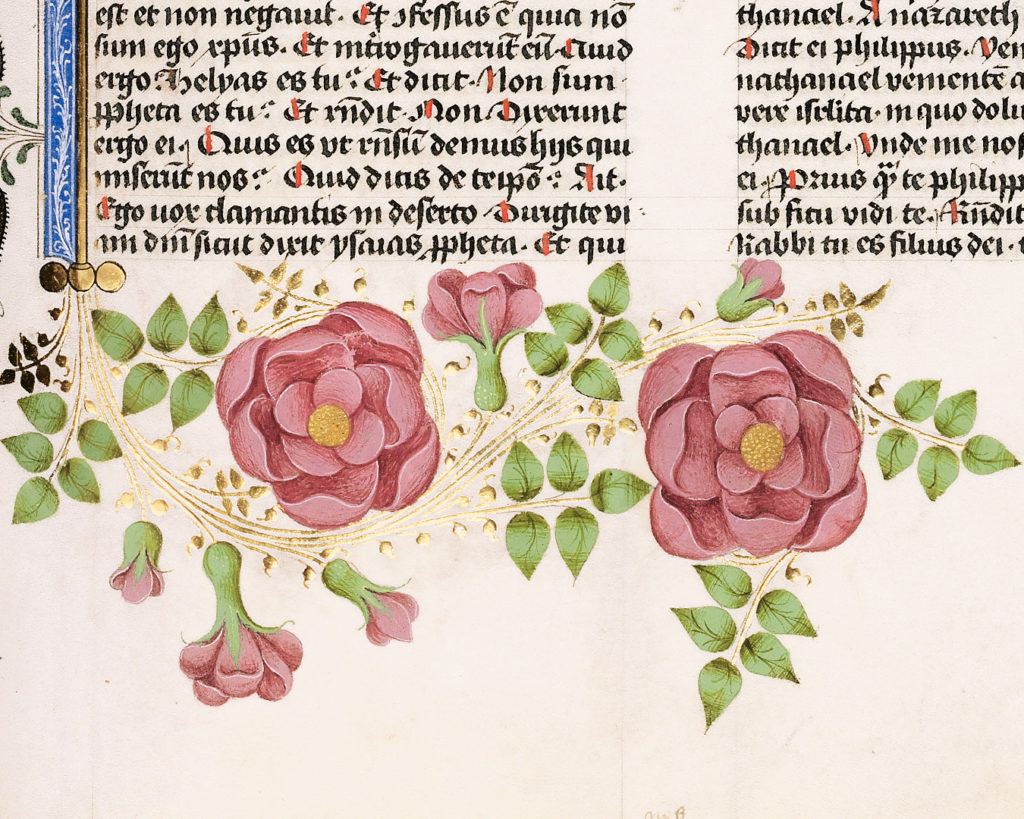 est et non negauit. Et ↄfessus ē quia nō
sum ego xp̄us. Et int̄rogauerūt eū. Quid
ergo. Helyas es tu? Et dicit. Non sum
ꝓpheta es tu? Et rn̄dit. Non. Dixerunt
ergo ei. Quis es vt rn̄sū demus hijs qui
miserūt nos? Quid dicis de teip̄o? Ait.
Ego uox clamantis in deserto. Dirigite vi
am dn̄i sicut dixit ysaias ꝓpheta. Et qui
thanael. A nazareth
Dicit ei philippus. Ven
nathanael venientē a
vere isr̄lita. in quo dolu
thanael. Vnde me nos
ei. Prius qͣ te philipp
sub ficu vidi te. Rn̄dit
Rabbi tu es filius dei. t